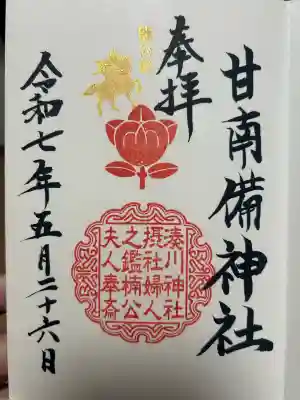 甘南備神社
奉拝
湊川神社
摂社婦人
之鑑楠公
夫人奉斎
令和七年五月二十六日